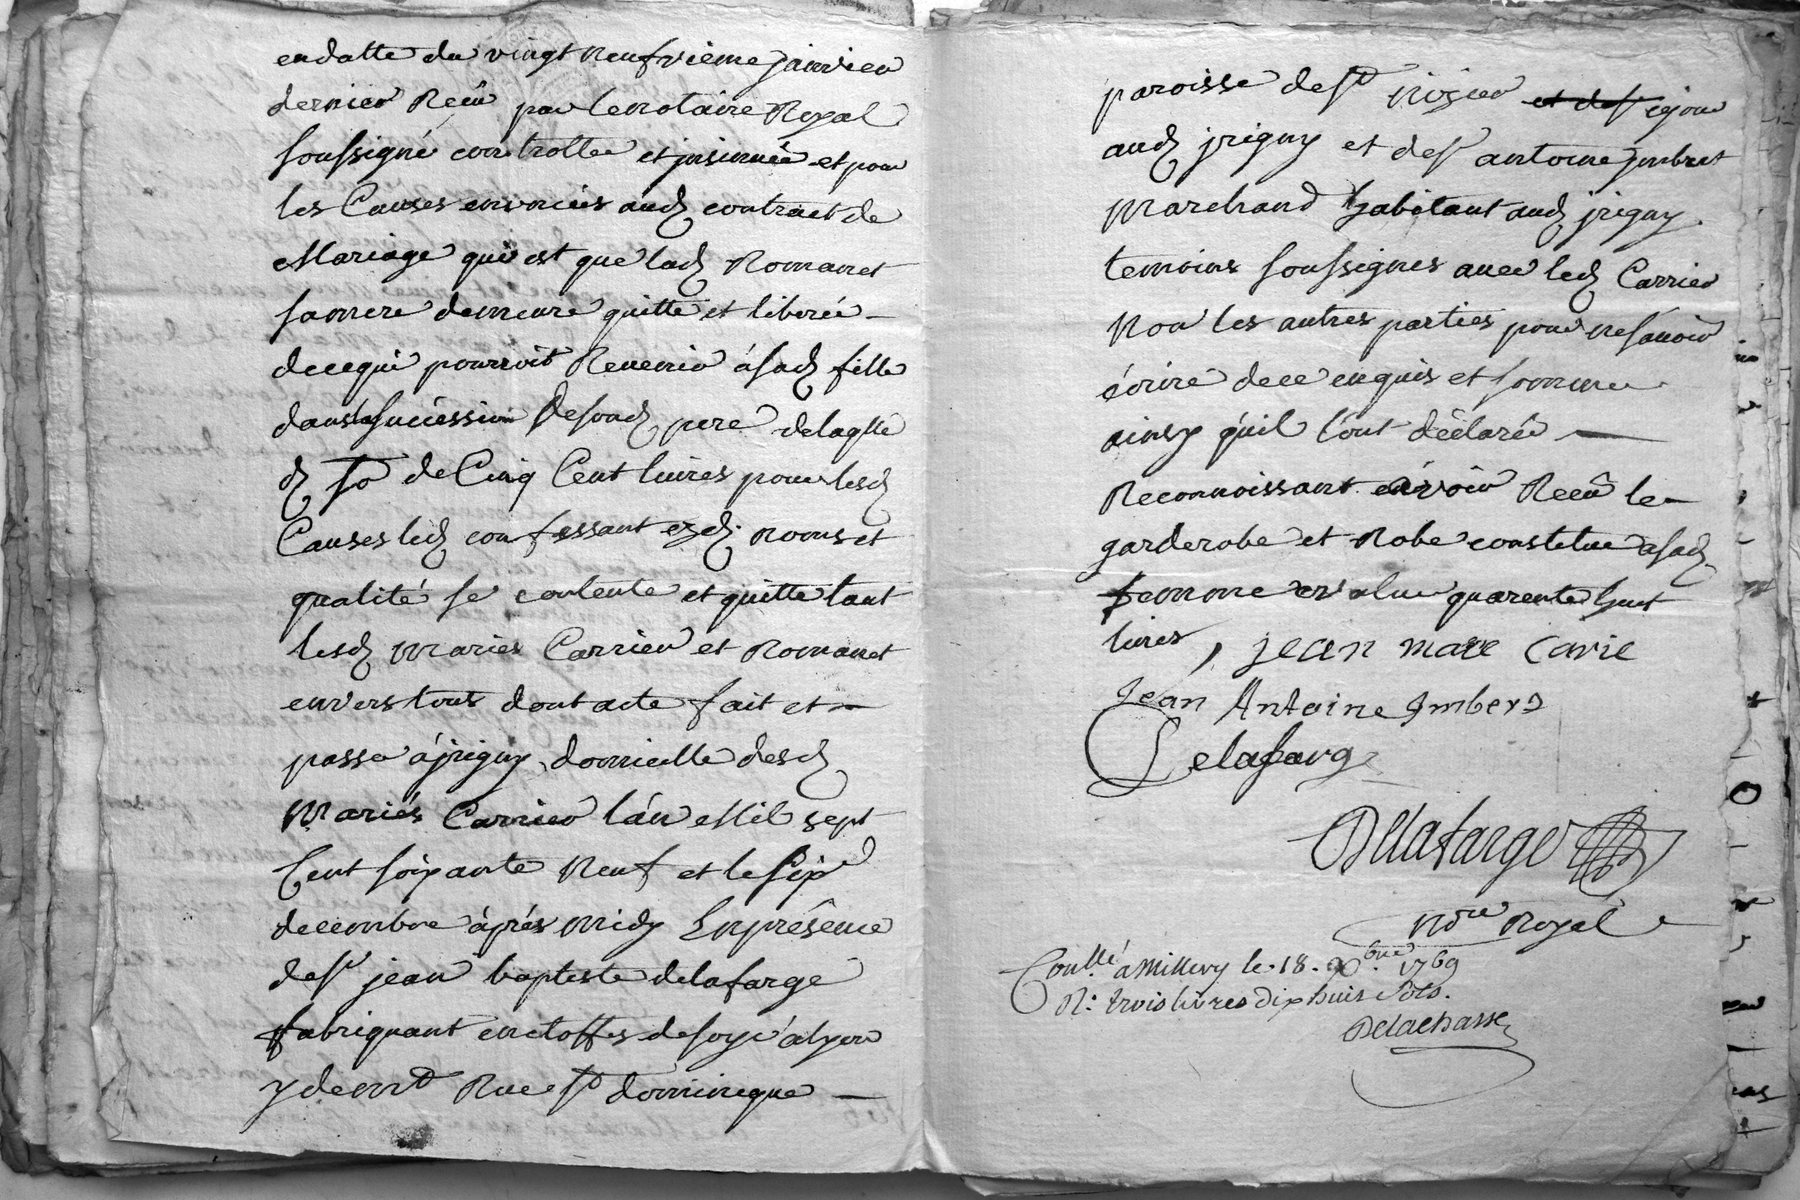 en datte du vingt neufvieme janvier
dernier Receu par le notaire Royal
soussigné controllé et jnsinuée et pour
les Causes enoncées aud contract de
Mariage qui est que lad Romanet
sa mere demeure quitte et liberée
de ce qui pourroit Revenir á sad fille
dans la succession de foud pere de laqlle
d so de Cinq Cent livres pour lesd
Causes led confessant ezd noms et
qualité se contente et quitte tant
lesd mariés Carrier et Romanet
envers tous dont acte fait et
passé á jrigny domicille desd
Mariés Carrier l'an Mil sept
Cent soixante neuf et le six
decembre áprés midy En présence
de sr jean baptiste delafarge
fabriquant en etoffes de soye á lyon
y demt Rue st dominique
paroisse de st nizier et de sejour
aud jrigny et de sr antoine jmbert
Marchand habitant aud jrigny
temoins soussignés avec led Carrier
Non les autres parties pour ne sçavoir
écrire de ce enquis et sommé
ainsy qu'il l'ont déclaré
Reconnoissant avoir Receu le
garderobe et Robe constitué a sad
femme evalué quarente huit
livres, jean marc carie
Jean Antoine Imberd
Delafarge
Delafarge
Nore Royal
Conllé a Millery le 18. xbre 1769
R. trois livres dix huit sols.
Delachasse